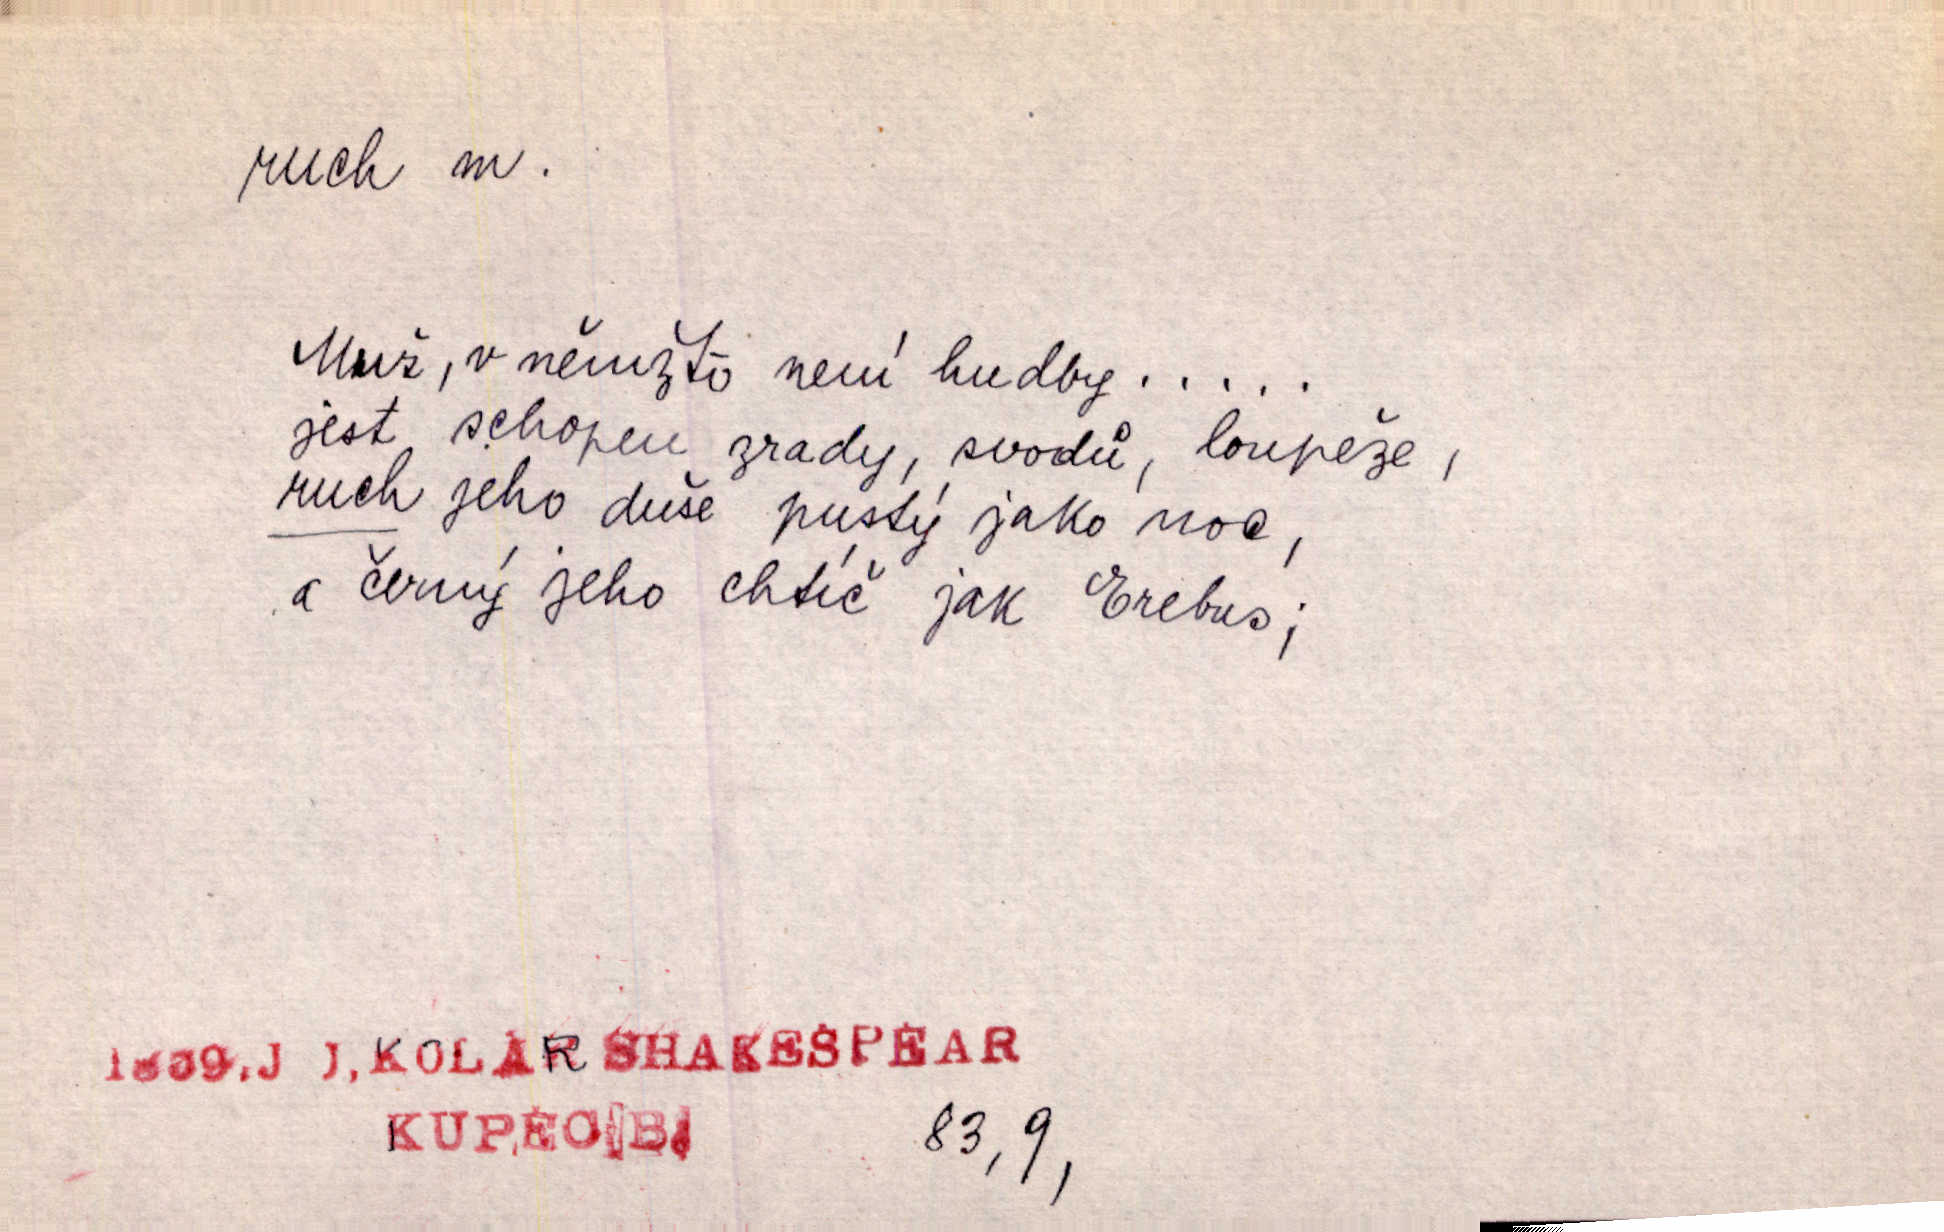 ruch m.
Muž, v němžto není hudby.....
jest schopen zrady, svodů, loupeže,
ruch jeho duše pustý jako noc,
a černý jeho chtíč jak Erebus;
J J, KOLÁR SHAKESPEAR
KUPEC B.
83, 9,